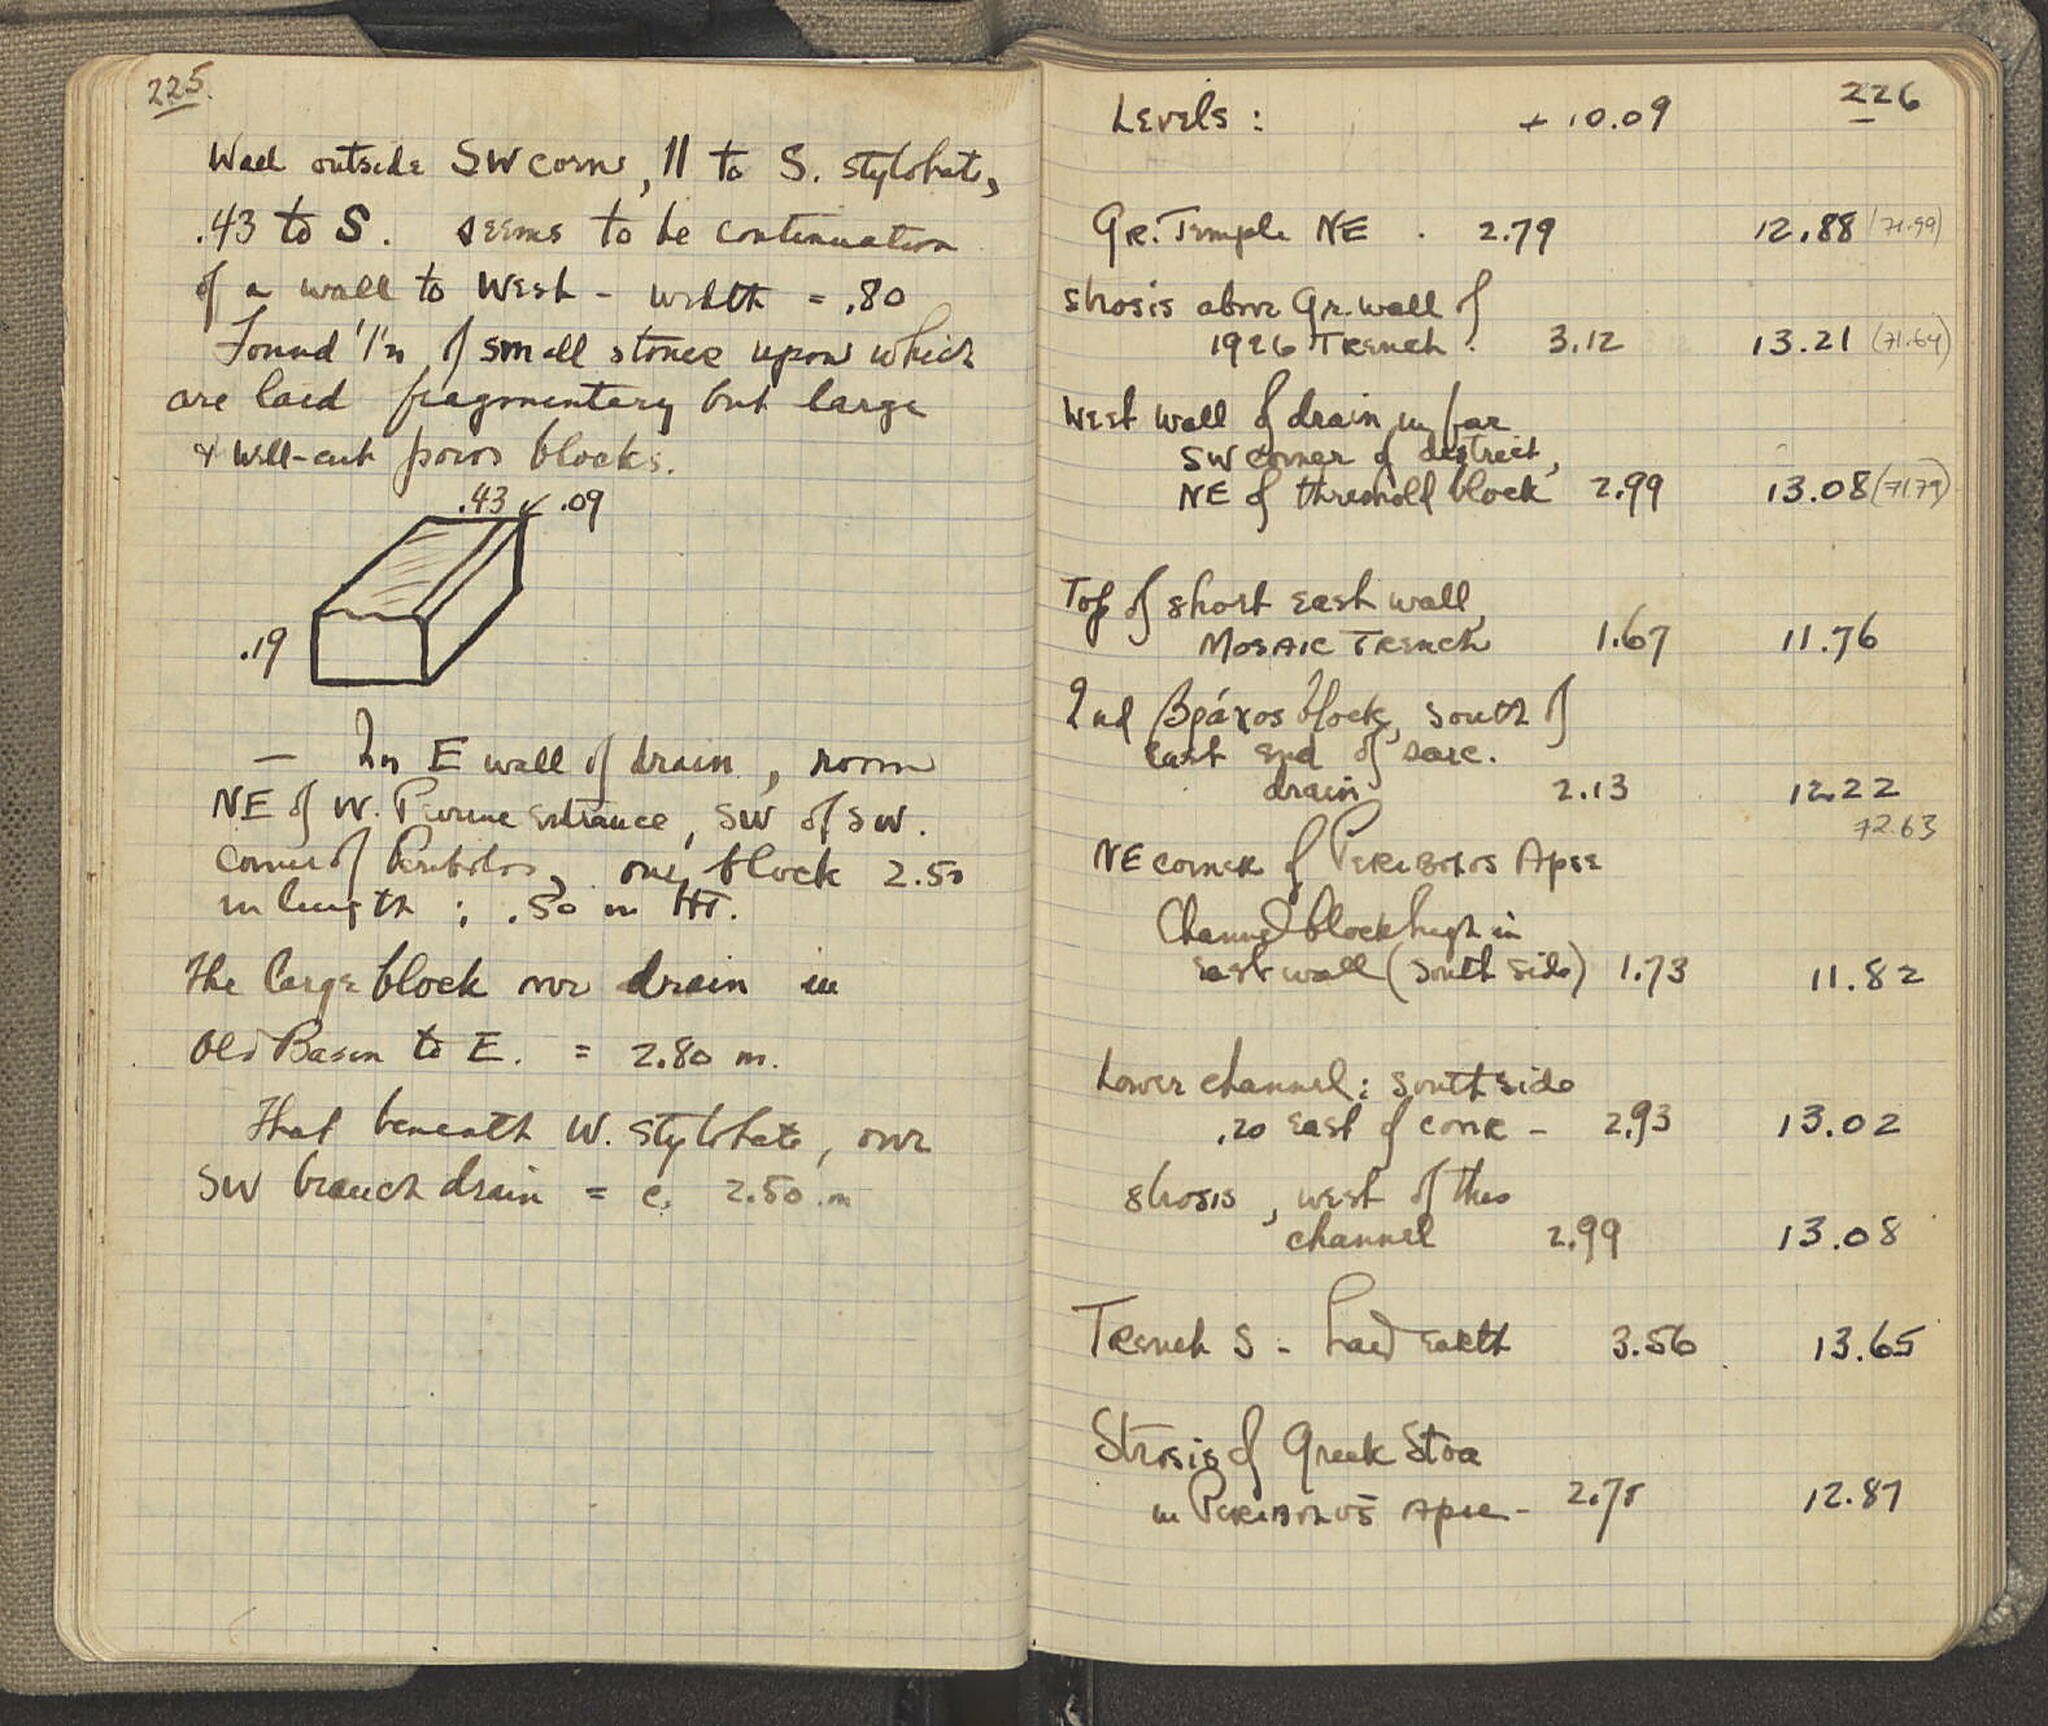 225.
Wall outside SW corner, || to S. stylobate,
.43 to S. seems to be continuation
of a wall to West - width = .80
Found'n of small stones upon which
are laid fragmentary but large
& well-cut poros blocks.
.43 ↙ .09
.19
— In E wall of drain, room
NE of W. Peirene entrance, SW of SW.
corner of Peribolos, one block 2.50
in length ; .50 in HT.
The large block over drain in
Old Basin to E. = 2.80 m.
That beneath W. stylobate, over
SW branch drain = c. 2.50 m
226
Levels : + 10.09
Gr. Temple NE . 2.79 12.88 (71.99)
strosis above Gr. wall of
1926 Trench . 3.12 13.21 (71.64)
West wall of drain in far
SW corner of district,
NE of threshold block 2.99 13.08 (71.79)
Top of short east wall,
Mosaic Trench 1.67 11.76
2nd Βράχος block, south of
east end of sarc.
drain 2.13 12.22
72.63
NE corner of Peribolos Apse
Channel block high in
east wall (south side) 1.73 11.82
Lower channel : south side
.20 east of corner - 2.93 13.02
strosis, west of this
channel 2.99 13.08
Trench S - hard earth 3.56 13.65
Strosis of Greek Stoa
in Peribolos Apse - 2.78 12.87